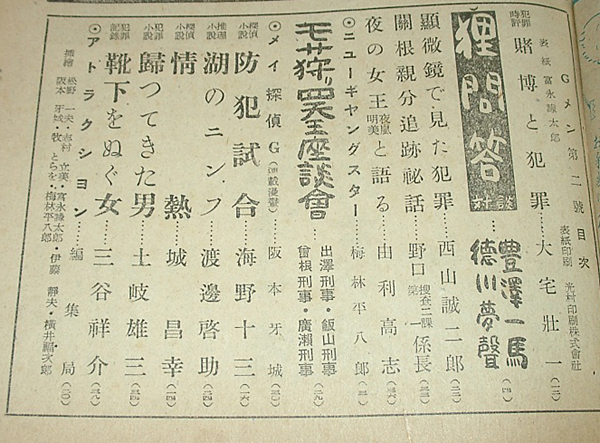 Gメン第二號目次
表紙 富永謙太郎
表紙印刷 光村印刷株式會社
犯罪時評 賭博と犯罪……大宅壯一(一二)
狸問答 對談…豊澤一馬 徳川夢聲(四)
顯微鏡で見た犯罪……西山誠二郎(二二)
關根親分追跡秘話……野口捜査二課第一係長
夜の女王 夜嵐明美 と語る……由利高志
◎ニューギヤングスター……梅林平八郎
モサ狩り四天王座談會…出澤刑事・飯山刑事 曾根刑事・廣瀬刑事
◎メイ探偵G(連載漫畫)……阪本牙城(三〇)
探偵小説 防犯試合……海野十三(一六)
推理小説 湖のニンフ……渡邊啓助
小説 情熱…城昌幸
犯罪小説 歸つてきた男……土岐雄三
犯罪記録 靴下をぬぐ女……三谷祥介
◎アトラクシヨン……編集局
插繪 松野一夫・志村立美・富永謙太郎・伊藤靜夫・横井福次郎
阪本牙城・牧とらを・梅林平八郎